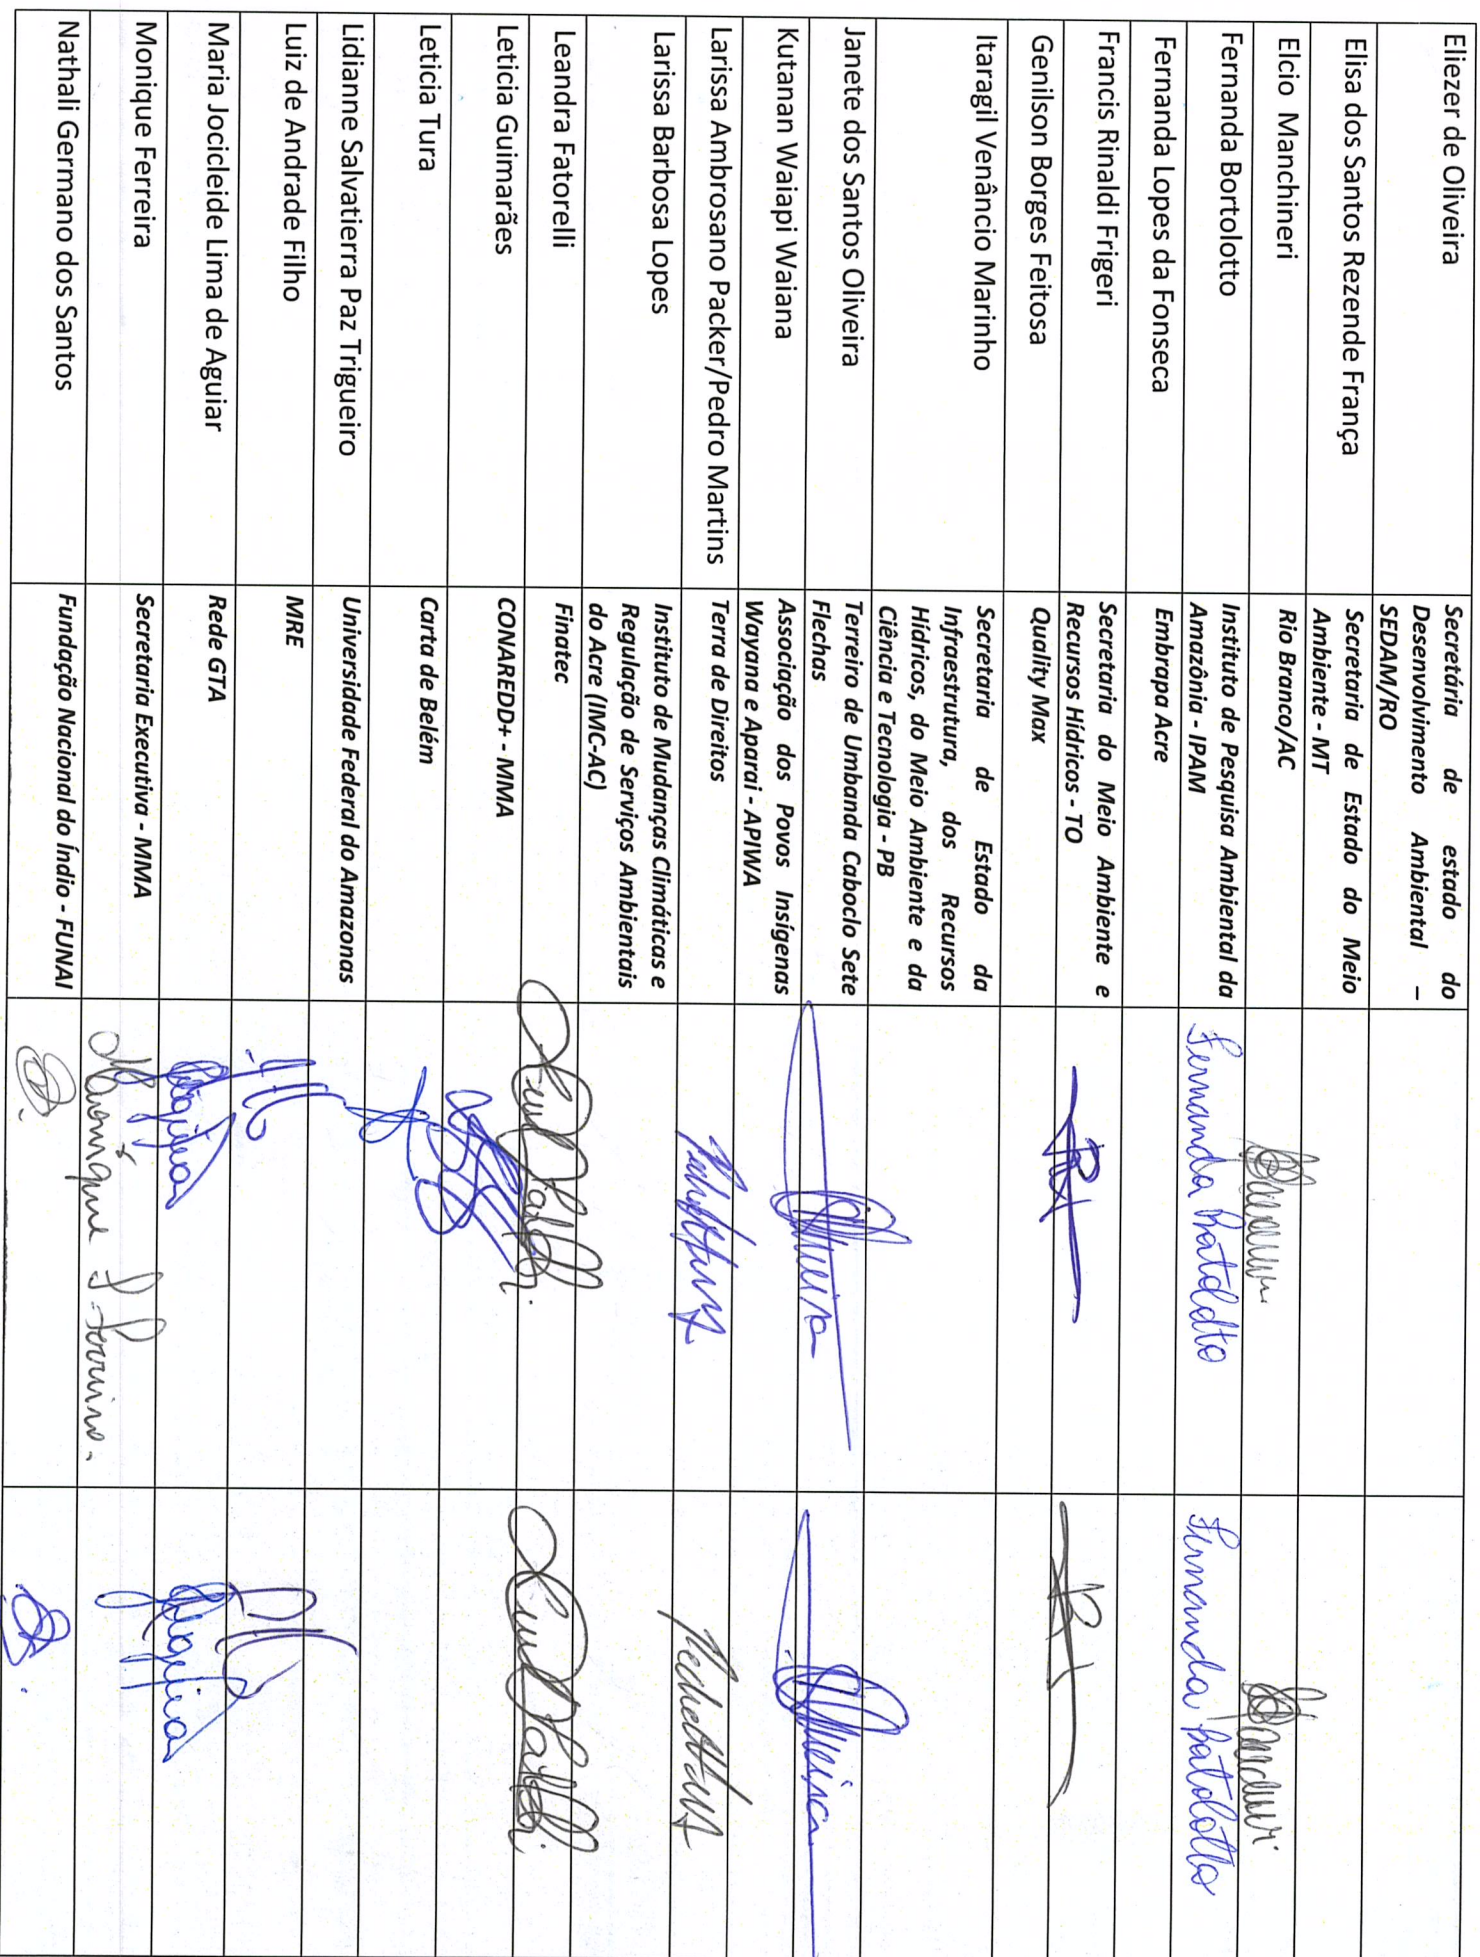 Eliezer de Oliveira
Secretária de estado do
Desenvolvimento Ambiental –
SEDAM/RO
Elisa dos Santos Rezende França
Secretaria de Estado do Meio
Ambiente - MT
Elcio Manchineri
Rio Branco/AC
Fernanda Bortolotto
Instituto de Pesquisa Ambiental da
Amazônia - IPAM
Fernanda Bortolotto
Fernanda Bortolotto
Fernanda Lopes da Fonseca
Embrapa Acre
Francis Rinaldi Frigeri
Secretaria do Meio Ambiente e
Recursos Hídricos - TO
Genilson Borges Feitosa
Quality Max
Itaragil Venâncio Marinho
Secretaria de Estado da
Infraestrutura, dos Recursos
Hídricos, do Meio Ambiente e da
Ciência e Tecnologia - PB
Janete dos Santos Oliveira
Terreiro de Umbanda Caboclo Sete
Flechas
Kutanan Waiapi Waiana
Associação dos Povos Insígenas
Wayana e Aparai - APIWA
Larissa Ambrosano Packer/Pedro Martins
Terra de Direitos
Larissa Barbosa Lopes
Instituto de Mudanças Climáticas e
Regulação de Serviços Ambientais
do Acre (IMC-AC)
Leandra Fatorelli
Finatec
Leticia Guimarães
CONAREDD+ - MMA
Leticia Tura
Carta de Belém
Lidianne Salvatierra Paz Trigueiro
Universidade Federal do Amazonas
Luiz de Andrade Filho
MRE
Maria Jocicleide Lima de Aguiar
Rede GTA
Monique Ferreira
Secretaria Executiva - MMA
Monique S. Ferreira
Nathali Germano dos Santos
Fundação Nacional do Índio - FUNAI